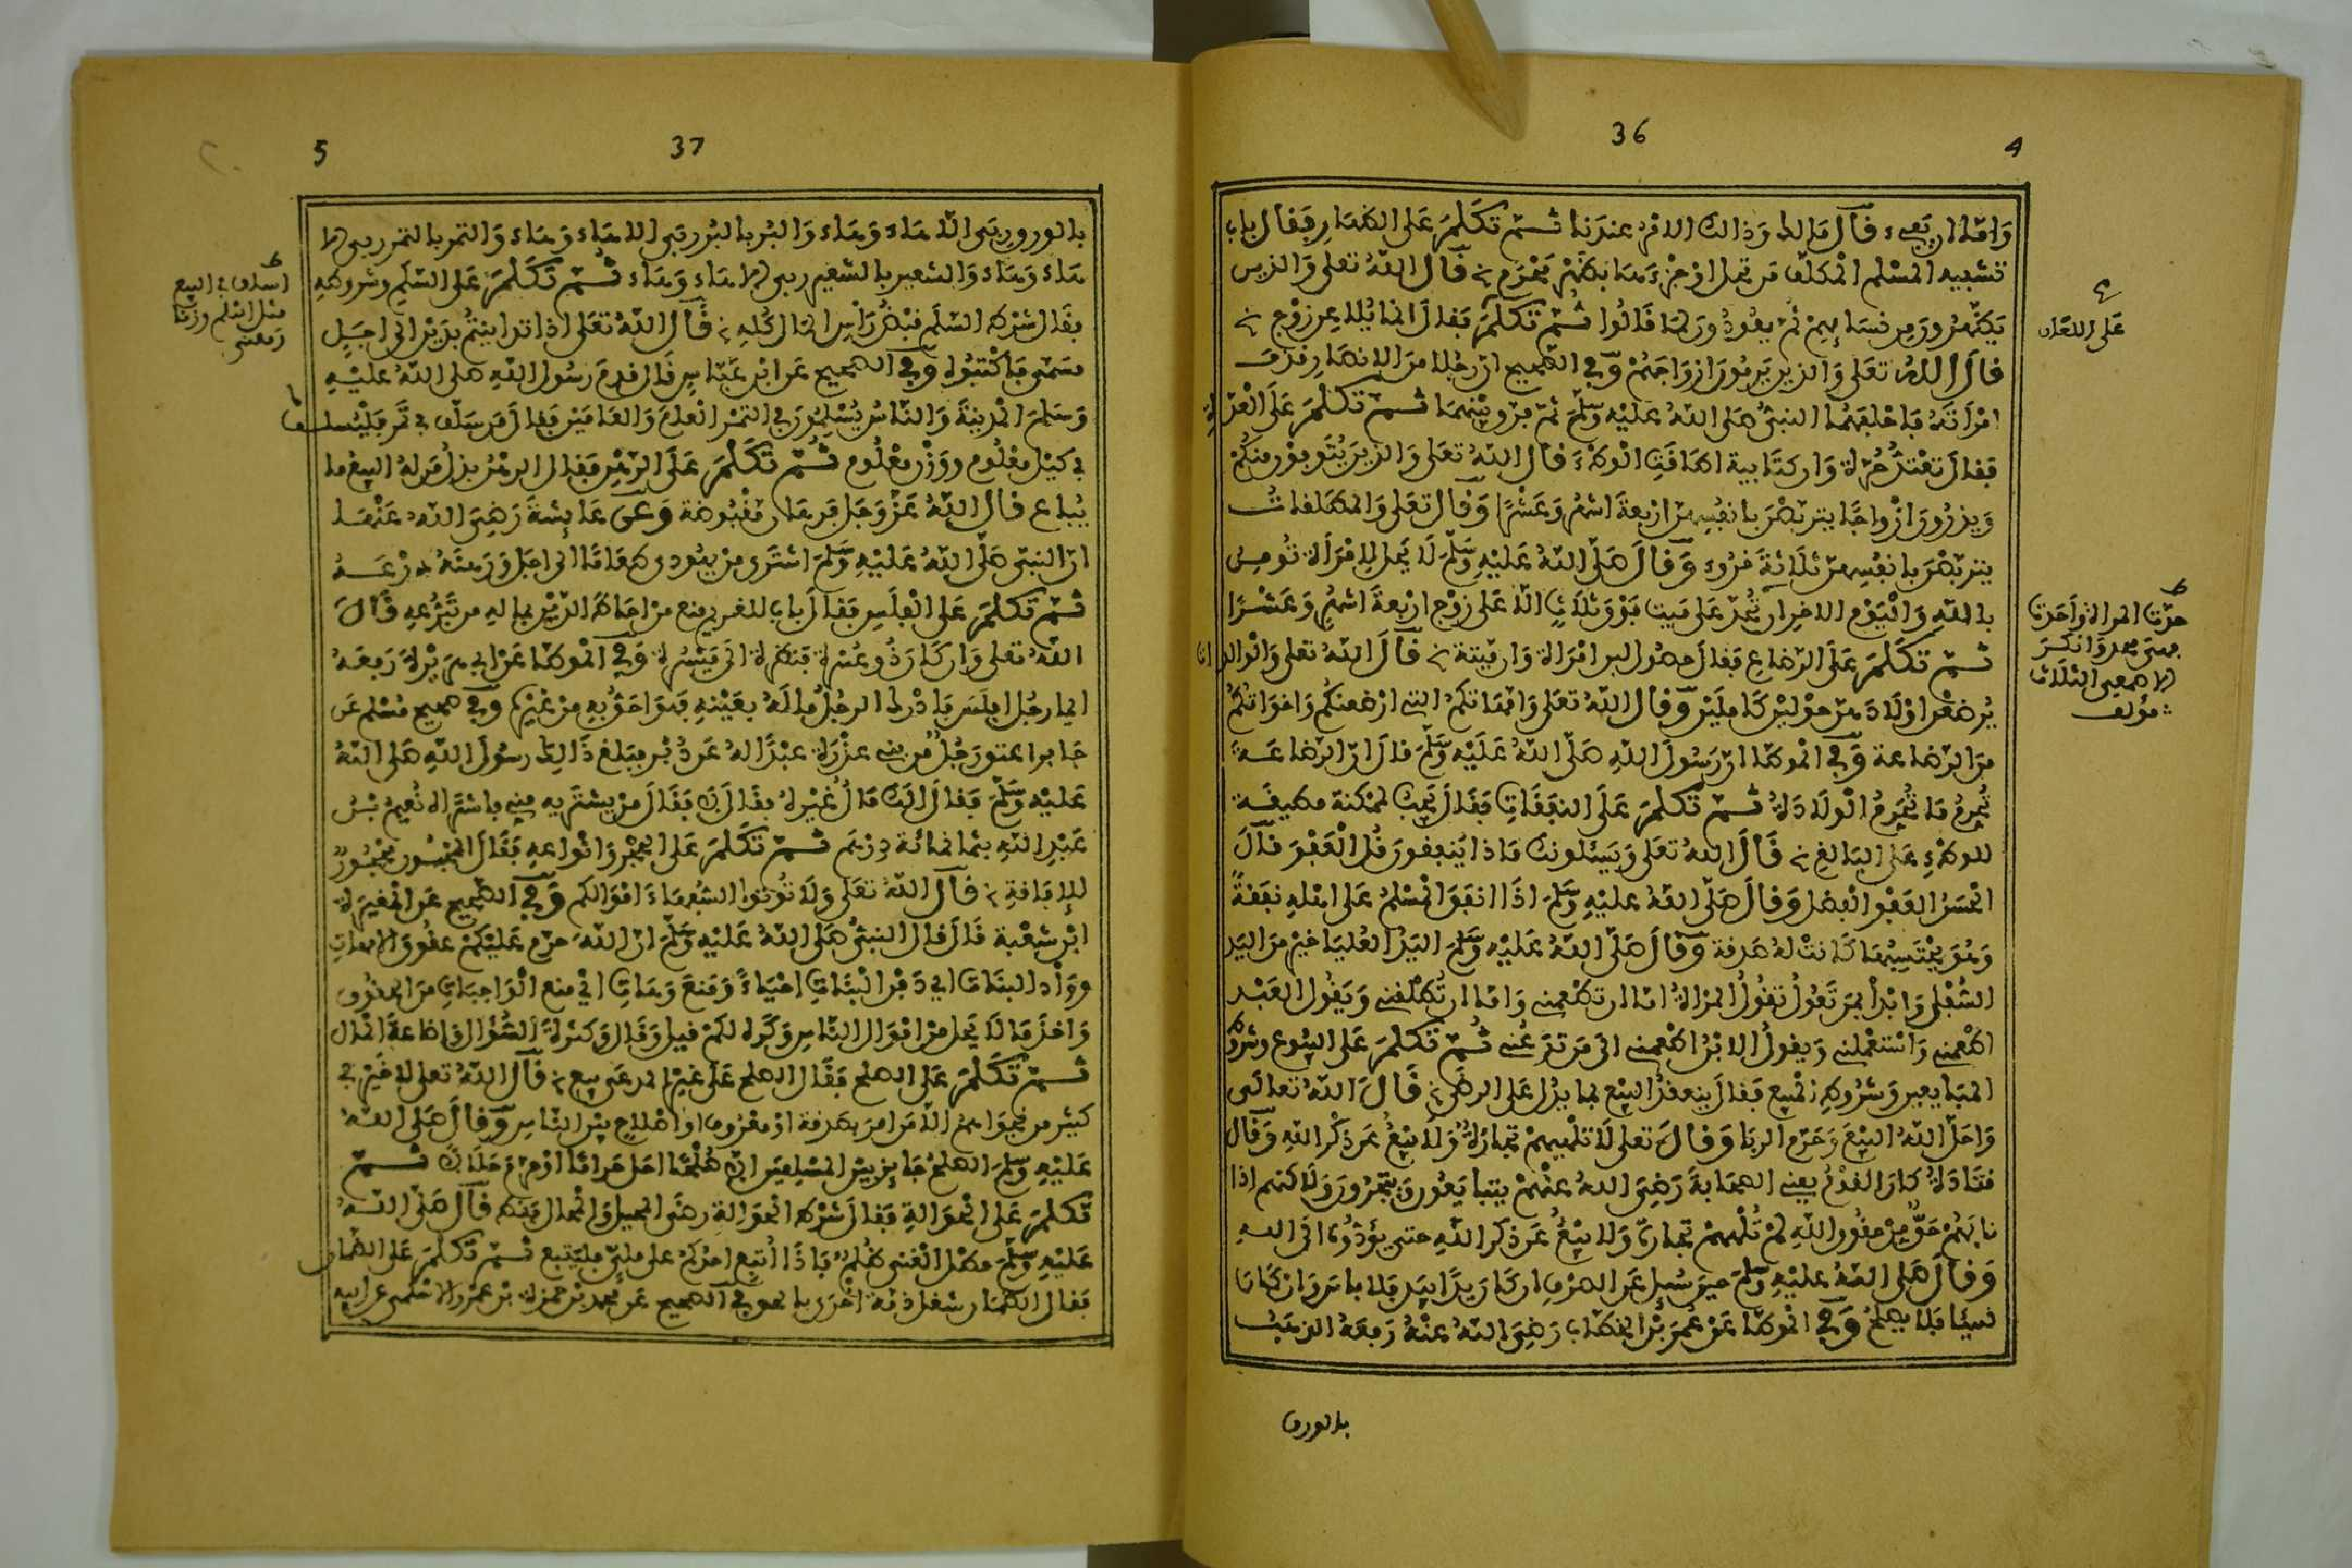 36
4
وَامّا ان يّفىء فَال مَالك وَذالك الامْر عندَنا ثـمّ تكَلّمَ عَلى الظهَارِ فقال باب
تشبيه المسْلم المكلّف من تحل اوْ جزْءهَا بظهْر مَحْرم قَال اللهُ تعلى وَالذين
يَظّهرُونَ مِن نسَايهمْ ثمّ يعُودُونَ لمَا قَالُوا ثُمّ تكَلّمَ فقال انما يُلاعن زوْج
قالَ اللهُ تعَلى وَالذين يَرمُونَ ازوَاجَهُمْ وَفي الصّحيح انّ رجُلا منَ الانصَارِ قذف
امْرأتَهُ فَاحْلفَهُمَا النبىُّ صَلى اللهُ عَليْهِ وَسَلّمَ ثمّ فرّق بيْنهمَا ثـمّ تكَلّمَ عَلَى العدّ
ة
فقالَ تعْتدُّ حُرّة وَان كتَابية اطاقَتِ الوطْءَ قال اللهُ تعَلى وَالذينَ يُتَوفوْن منكُمْ
وَيذرُونَ ازْوَاجًا يتربّصْنَ بانفُسهنّ ارْبعةَ اشهُر وَعَشْرًا وَقال تعَلى وَالمطلقاتُ
يتربّصْنَ بانفُسهنّ ثلَاثةَ قرُوء وَقالَ صَلّى اللهُ عَليْهِ وَسَلّمَ لَا يَحل لامْرَأة تُومـن
باللهِ وَاليَوْم الاخِر ان تُحدّ عَلى مَيت فوْقَ ثلَاثٍ الّا عَلى زوْج ارْبعةَ اشهُر وَعَشْـرًا
ثـمّ تكَلّمَ عَلَى الرّضاعِ فقالَ حصُول لبن امْرَأة وَان ميّتة قَالَ اللهُ تعَلى وَالوالد
ات
يُرضعْنَ اوْلَادَهنّ حوْليْن كَامليْنِ وَقال اللهُ تعَلى وَامّهَاتكمُ التي ارْضعنكُم وَاخوَاتكُمْ
منَ الرّضاعة وَفي الموطّا انّ رَسُولَ اللهِ صَلّى اللهُ عَلَيْهِ وَسَلّمَ قالَ انّ الرّضاعَـةَ
تُحرمُ مَا تُحَرمُ الْولَادَةُ ثـمّ تكَلّمَ عَلَى النفَقَاتِ فقَالَ يَجبُ لممْكنة مطيقَـة
للوطْءِ عَلى البَالغِ قَالَ اللهُ تعَلى وَيَسْئلونكَ مَاذا يُنفِقونَ قُل العَفْوَ قالَ
الحَسَنُ العَفْو الفضل وَقالَ صَلّى اللهُ عليْهِ وَسَلّمَ اذَا انفقَ المسْلمُ عَلى اهْلهِ نفَقةً
وَهُوَ يحْتَسِبُهَا كَانتْ لهُ صَدَقة وَقالَ صَلّى اللهُ عَليْهِ وَسَلّمَ اليَدُ العُليَا خَيْر منَ اليَد
السُّفْلى وَابْدأ بمَن تَعُولُ تقُولُ المرْأةُ امّا ان تطْعمني وَامّا ان تُطلّقني وَيَقُول العَبْـد
اطْعمنِي وَاسْتعْملني وَيقُولُ الابْنُ اطْعمني الى مَن تدَعُني ثُـمّ تكَلّمَ عَلَى البيُوع وشرُوط
المتبايعين وَشرُوطِ المبيع فقالَ ينعقدُ البيْع بما يدُل عَلَى الرضَى قَالَ اللهُ تعالَى
وَاحَلّ اللهُ البيْعَ وَحَرّم الربَا وَقالَ تعلى لَا تلْهيهمْ تجَارَةٌ وَلَا بيْعٌ عَن ذكْر اللهِ وَقَالَ
قتَادَةُ كانَ القوْمُ يعني الصحَابةَ رَضِىَ اللهُ عنْهُمْ يتبَايَعُونَ وَيتجرُونَ وَلَاكنهم اذا
نابَهُمْ حَقٌّ مِنْ حقُوقِ اللهِ لَمْ تُلْههمْ تجَارَة وَلَا بيْعٌ عَن ذكر اللهِ حتى يؤَدُّوهُ الَى اللهِ
وَقالَ صَلى اللهُ عَليْهِ وَسَلّمَ حينَ سُئل عَن الصرْف ان كَانَ يَدًا بيَد فلَا بأسَ وَانْ كَانَ
نسيئًا فَلَا يصلحُ وَفي الموطّا عَنْ عُمَرَ بْن الخطّاب رَضِيَ اللهُ عنْهُ رَفعَهُ الذهَبُ
بالورق
عَلى اللعَان
حدّت المرأة وَأحَدّت
بمعنى وَانكَرَ
الاصمعى الثلَاث
مؤلف
37
5
بالورق ربَى الّا هَاءَ وَهَاء وَالبُر بالبُر ربَى الا هَاء وَهَاء وَالتمر بالتمر ربى الا
هَاء وَهَاء وَالشعير بالشعير ربى الا هَاء وَهَاء ثُـمّ تكَلّمَ عَلَى السّلَمِ وشروطهِ
فقَال شرْط السّلَم قبْضُ رَأس المَال كُلهِ قَالَ اللهُ تعَلى اذَا تداينتُم بدَيْن الى اجَـلٍ
مسَمّى فَاكْتبُوهُ وَفي الصحيح عَن ابْن عَبّاس قالَ قدمَ رَسُول اللهِ صلى اللهُ عَليْـهِ
وَسَلمَ المَدينةَ وَالنّاسُ يُسْلِفُونَ في التمْر العامَ وَالعَامَيْن فقالَ مَن سَلّف في تَمر فليُسلـف
في كيْل معْلُوم ووَزْن معْلُوم ثُـمّ تكَلّمَ عَلَى الرّهْنِ فَقال الرهْنُ بذلُ مَن لهُ البيْعُ ما
يُبَاع قال اللهُ عَزّ وَجَل فرهَان مقْبُوضة وَعَن عَائشةَ رَضِىَ اللهُ عَنْهَـا
انّ النبىّ صَلّى اللهُ عَليْهِ وَسَلّمَ اشترَى منْ يهُودي طعَامًا الى اجَل وَرَهنَهُ درْعَـهُ
ثـمّ تكَلّمَ عَلى الفَلَسِ فقال بَابٌ للغريم منع منْ احَاطَ الدّيْنُ بمَالهِ من تبَرُّعهِ قَالَ
اللهُ تعَلى وَان كَانَ ذُو عُسْرَة فنَظرة الى مَيْسُرة وَفي الموطّا عَنْ ابي هرَيْرَةَ رَفعَهُ
ايّما رجُل افلَسَ فادْرَك الرجُلُ مالَهُ بعَيْنهِ فهُوَ احَقُّ بهِ منْ غيْرهِ وَفي صحيح مُسْلم عَن
جَابر اعتق رَجُلٌ من بني عذْرَة عبْدًا لهُ عَن دُبُر فبلغَ ذَالكَ رسُولَ اللهِ صَلى اللهُ
عَليْهِ وَسَلّمَ فقالَ الَكَ مَالٌ غيْرهُ فقَالَ لَا فقَالَ منْ يشتريه مني فاشترَاهُ نُعيْمُ بْـن
عَبْد اللهِ بثمانمائة درْهَم ثـمّ تكَلّمَ عَلى الحجْر وَانْوَاعهِ فقَالَ المجْنـون محْجُورٌ
للافَاقةِ قَالَ اللهُ تعَلى وَلَا تُوتوا السُّفهَاءَ امْوَالكُم وَفي الصّحيح عَن المغيرَة
ابْن شعْبة قَالَ قال النبىُّ صَلى اللهُ عَليْهِ وَسَلّمَ انّ اللهَ حرّم عَليْكُمْ عقُوقَ الامهَاتِ
ووَأد البنَات اي دَفْن الْبنَاتِ احْيَاءً وَمَنعَ وَهَاتِ اي منع الْوَاجبَاتِ منَ الحقوق
وَاخذَ مَا لَا يَحل منْ امْوَال النّاسِ وَكرهَ لكُمْ قيل وَقَال وَكثرَةَ السُّؤَال وَاضاعةَ المَال
ثـمّ تكَلّمَ عَلى الصلح فقَال الصلح عَلى غيْر المدعَى بيع قَالَ اللهُ تعَلى لَا خَيْرَ في
كثير من نجوَاهمُ الّا مَن امرَ بصَدقة اوْ معْرُوف اوْ اصْلَاح بيْن النّاسِ وَقالَ صَلى اللهُ
عَليْهِ وَسَلّمَ الصلحُ جَائز بيْن المسْلمينَ الّا صُلْحًا احَل حَرَامًا اوْ حرّمَ حَلَالًا ثـمّ
تكَلّمَ عَلَى الحَوَالةِ فقالَ شرْط الحوَالةِ رضَى المحيل وَالمحَال فقط قالَ صَلّى اللهُ
عَليْهِ وَسَلّمَ مطْل الغنى ظُلْمٌ فَاذَا اُتبعَ احدُكمْ على ملىّ فليتبع ثـمّ تكَلّمَ عَلَى الضّمان
فقال الضمَان شغل ذمّة اخْرَى بالحق وفي الصحيح عَن محمد بْن حمْزَة بْن عمْرو الاسْلمى عن ابيه
اسلف في البيع
مثل اسْلم وزنا
ومعنى